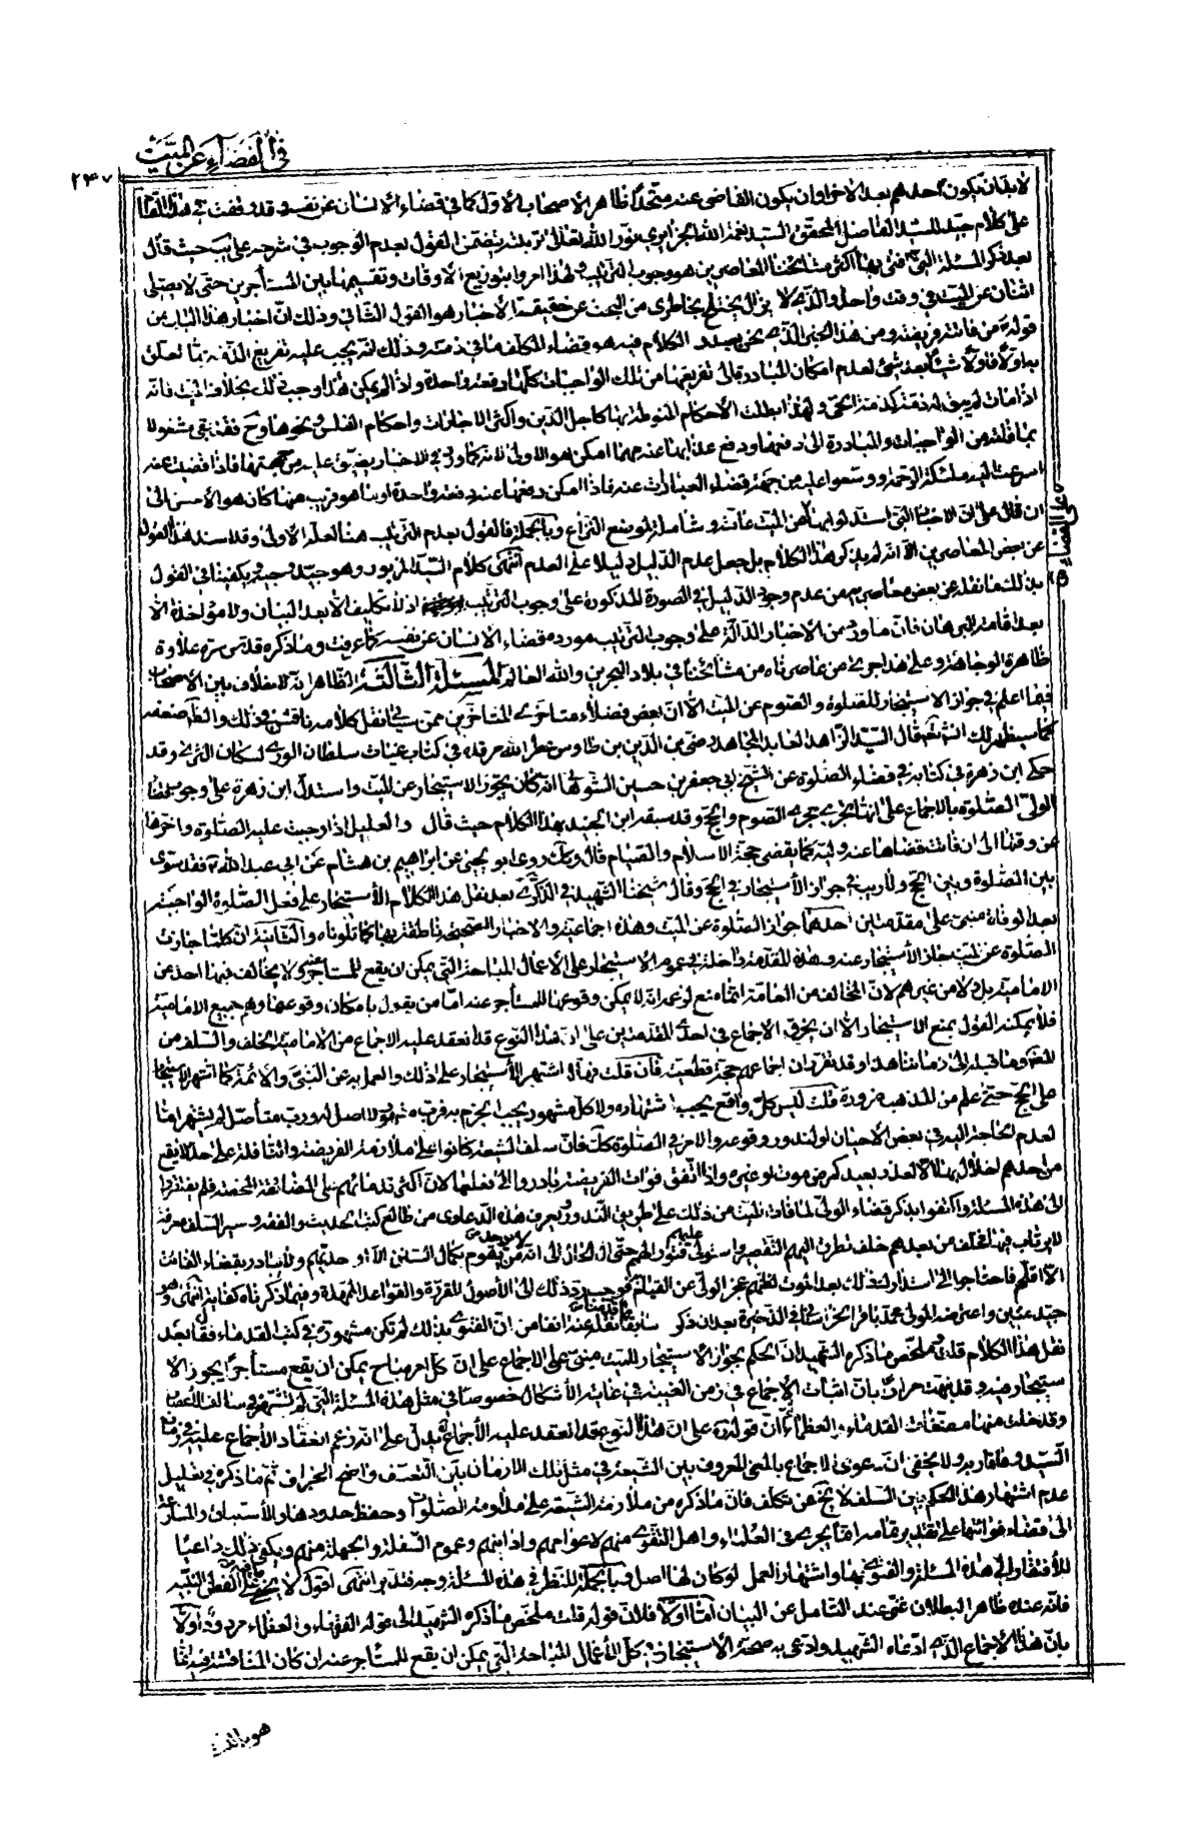 في القضاء عن الميت
٢٤٧
لا بد ان يكون احدهم بعد الاخر او ان يكون القاضى عنه متحدًا ظاهر الاصحاب الاول كما في قضاء الانسان عن نفسه وقد وقفت في هذا المقام
على كلام جيد للسيد الفاضل المحقق السيد نعمة الله الجزائري نور الله تعالى تربته يتضمن القول بعدم الوجوب في شرحه على يب حيث قال
بعد ذكر المسئلة التي فتى بها اكثر مشائخنا المعاصرين هو وجوب الترتيب ولهذا امروا بتوزيع الاوقات وتقسيمها بين المستأجرين حتى لا يصلى
اثنان عن الميت في وقت واحد والذي لا يزال يختلج بخاطرى من البحث عن حقيقة الاخبار هو القول الثاني وذلك ان اخبار هذا الباب من
قوله من فاتته فريضة ومن هذا الحي الذي نحن بصدد الكلام فيه هو قضاء المكلف ما في ذمته وذلك لانه يجب عليه تفريغ الذمة مما تعلق
بها اولا فاولا شيئا بعد شئ لعدم امكان المبادرة الى تفريغها من تلك الواجبات كلها دفعة واحدة واذا لم يمكن هذا وجب ذلك بخلاف الميت فانه
اذا مات لم يبق له ذمة كذمة الحي ولهذا ابطلت الاحكام المنوطة بها كاجل الدين واكثر الاجارات واحكام الفلس ونحوها وح فقد بقي مشغولا
بما فاته من الواجبات والمبادرة الى دفعها ودفع عذابها عنه مهما امكن هو الاولى لانه كما ورد في الاخبار يضيق عليه من جهتها فاذا قضيت عنه
اسرعت اليه ملئكة الرحمة ووسعوا عليه من جهة قضاء العبادات عنه فاذا امكن دفعها عنه دفعة واحدة او بما هو قريب منها كان هو الاحسن الى
ان قال على ان الاخبار التي استدلوا بها عن الميت عامة وشاملة لموضع النزاع وبالجملة فالقول بعدم الترتيب هنا لعله الاولى وقد اسند هذا القول
عن بعض المعاصرين الا انه لم يذكر هذا الكلام بل جعل عدم الدليل دليلا على العدم انتهى كلام السيد المزبور وهو جيد وجيه ويكفينا في القول
بذلك ما نقله عن بعض معاصريه من عدم وجود الدليل في الصورة المذكورة على وجوب الترتيب اذ لا تكليف الا بعد البيان ولا مؤاخذة الا
بعد اقامة البرهان فان ما ورد من الاخبار الدالة على وجوب الترتيب مورده قضاء الانسان عن نفسه كما عرفت وما ذكره قدس سره علاوة
ظاهرة الوجاهة وعلى هذا جرى من عاصرناه من مشائخنا في بلاد البحرين والله العالم المسئلة الثالثة الظاهر انه لا خلاف بين الاصحاب
فيما اعلم في جواز الاستيجار للصلوة والصوم عن الميت الا ان بعض فضلاء متأخرى المتأخرين ممن سيأتي نقل كلامه ناقش في ذلك والظ ضعفه
كما سيظهر لك انشاء الله قال السيد الزاهد العابد المجاهد رضى الدين بن طاوس عطر الله مرقده في كتاب غياث سلطان الورى لسكان الثرى وقد
حكى ابن زهرة في كتابه في قضاء الصلوة عن الشيخ ابي جعفر بن حسين الشوهاني انه كان يجوز الاستيجار عن الميت واستدل ابن زهرة على وجوب قضاء
الولى الصلوة بالاجماع على انها تجرى مجرى الصوم والحج وقد سبقه ابن الجنيد بهذا الكلام حيث قال والعليل اذا وجبت عليه الصلوة واخرها
عن وقتها الى ان فاتت قضاها عنه وليه كما يقضى حجة الاسلام والصيام قال وكك روى ابو يحيى عن ابراهيم بن هشام عن ابي عبد الله فقد سوى
بين الصلوة وبين الحج ولا ريب في جواز الاستيجار في الحج وقال شيخنا الشهيد في الذكرى بعد نقل هذا الكلام الاستيجار على فعل الصلوة الواجبة
بعد الوفاة مبنى على مقدمتين احدهما جواز الصلوة عن الميت وهذه اجماعية والاخبار الصحيحة ناطقة بها كما تلوناه والثانية ان كلما جازت
الصلوة عن الميت جاز الاستيجار عنه وهذه المقدمة داخلة في عموم الاستيجار على الاعمال المباحة التي يمكن ان يقع للمستأجر عنه ولا يخالف فيها احد من
الامامية بل ولا من غيرهم لان المخالف من العامة انما منع لزعمه انه لا يمكن وقوعها للمستأجر عنه اما من يقول بامكان وقوعها وهم جميع الامامية
فلا يمكنه القول بمنع الاستيجار الا ان يخرق الاجماع في احدى المقدمتين على ان هذا النوع قد انعقد عليه الاجماع من الامامية الخلف والسلف من
المصنف وما قبله الى زماننا هذا وقد تقرر ان اجماعهم حجة قطعية فان قلت فهلا اشتهر الاستيجار على ذلك والعمل به عن النبي والائمة كما اشتهر الاستيجار
على الحج حتى علم من المذهب ضرورة قلت ليس كل واقع يجب اشتهاره ولا كل مشهور يجب الجزم به فرب مشهور لا اصل له ورب متأصل لم يشتهر اما
لعدم الحاجة اليه في بعض الاحيان او لندور وقوعه والامر في الصلوة كك فان سلف الشيعة كانوا على ملازمة الفريضة والنافلة على حد لا يقع
من احدهم اخلال بها الا لعذر بعيد كمرض موت او غيره واذا اتفق فوات الفريضة بادروا الى فعلها لان اكثر قدمائهم على المضايقة المحضة فلم يفتقروا
الى هذه المسئلة واكتفوا بذكر قضاء الولى لما فات الميت من ذلك على طريق الندور ويعرف هذه الدعاوى من طالع كتب الحديث والفقه وسير السلف معرفة
لا يرتاب فيها فخلف من بعدهم خلف تطرق اليهم التقصير واستولى عليهم فتور الهمم حتى آل الحال الى انه لا يوجد من يقوم بكمال السنن الا اوحديهم ولا يبادر بقضاء الفائت
الا اقلهم فاحتاجوا الى استدراك ذلك بعد الموت لظنهم عجز الولى عن القيام به فوجب رد ذلك الى الاصول المقررة والقواعد الممهدة وفيما ذكرناه كفاية انتهى وهو
جيد متين واعترضه المولى محمد باقر الخراساني في الذخيرة بعد ان ذكر سابقا ما قدمناه نقله عنه انفا من ان الفتوى بذلك لم تكن مشهورة في كتب القدماء فقال بعد
نقل هذا الكلام قلت ملخص ما ذكره الشهيد ان الحكم بجواز الاستيجار للميت مبنى على الاجماع على ان كل امر مباح يمكن ان يقع مستأجرًا يجوز الا
ستيجار فيه وقد نبهت مرارًا بان اثبات الاجماع في زمن الغيبة في غاية الاشكال خصوصا في مثل هذه المسئلة التي لم تشتهر في سالف الاعصار
وقد خلت منها مصنفات القدماء والعظماء ثم ان قوله ره على ان هذا النوع قد انعقد عليه الاجماع يدل على انه زعم انعقاد الاجماع عليه في زمان
السيد وما قاربه ولا يخفى ان دعوى الاجماع بالمعنى المعروف بين الشيعة في مثل تلك الازمان بين التعسف واضح الجزاف ثم ما ذكره في تعليل
عدم اشتهار هذا الحكم بين السلف لا يخ عن تكلف فان ما ذكره من ملازمة الشيعة على مداومة الصلوات وحفظ حدودها والاستباق والمسارعة
الى قضاء فوائتها على تقدير تمامه انما يجرى في العلماء واهل التقوى منهم لا عوامهم وادانيهم وعموم السفلة والجهلة منهم ويكفى ذلك داعيا
للافتقار الى هذه المسئلة والفتوى بها واشتهار العمل لو كان لها اصل وبالجملة للنظر في هذه المسئلة وجه فتدبر انتهى اقول لا يخفى ما فيه على الفطن النبيه
فانه عنده ظاهر البطلان غنى عند التأمل عن البيان اما اولا فلان قوله قلت ملخص ما ذكره الشهيد الى قوله الفقهاء والعظماء مردود اولا
بان هذا الاجماع الذي ادعاه الشهيد وادعى به صحة الاستيجار في كل الاعمال المباحة التي يمكن ان يقع للمستأجر عنه ان كان المناقشة فيه لما